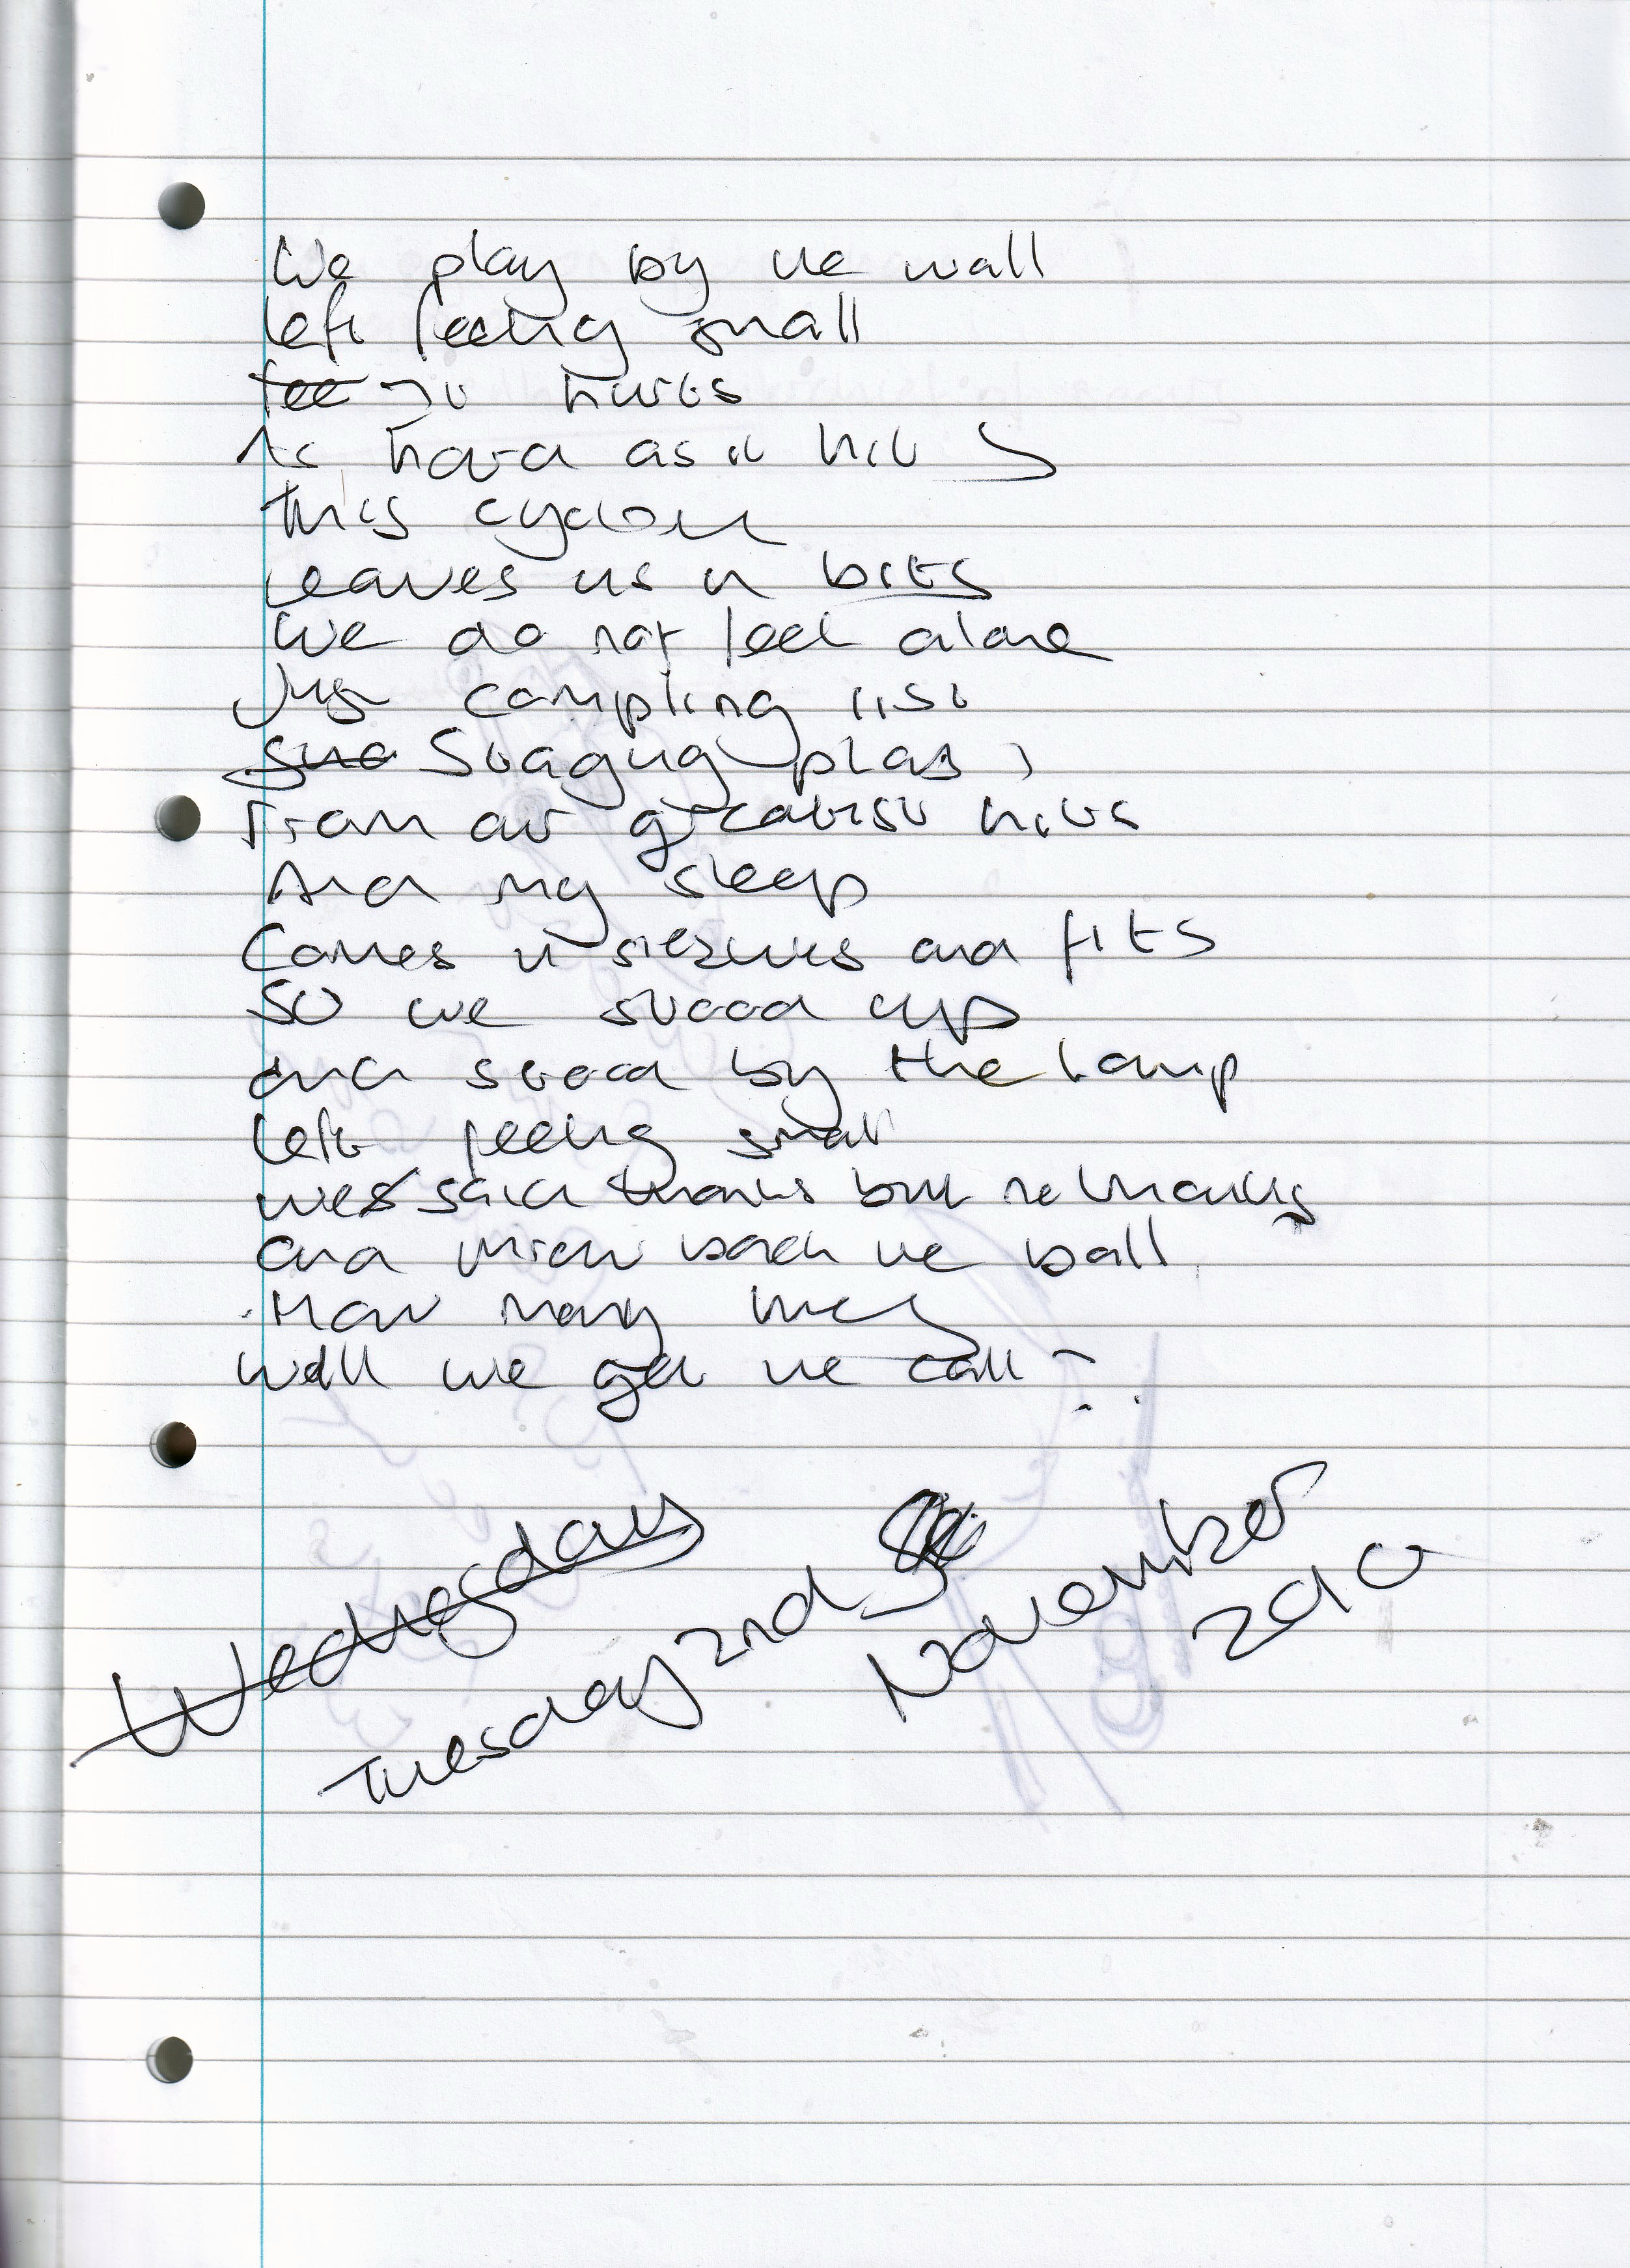 We play by the wall
left feeling small
fee It hurts
As hard as it hits
this cyclone
leaves us in bits
We do not feel alone
Just compiling list
Staging plays
From our greatest hits
And my sleep
Comes in seizures and fits
So we stood up
and stood by the lamp
left feeling small
we said thanks but no thanks
and threw back the ball
How many times
will we get the call?
Wednesday
Tuesday 2nd
November
2010